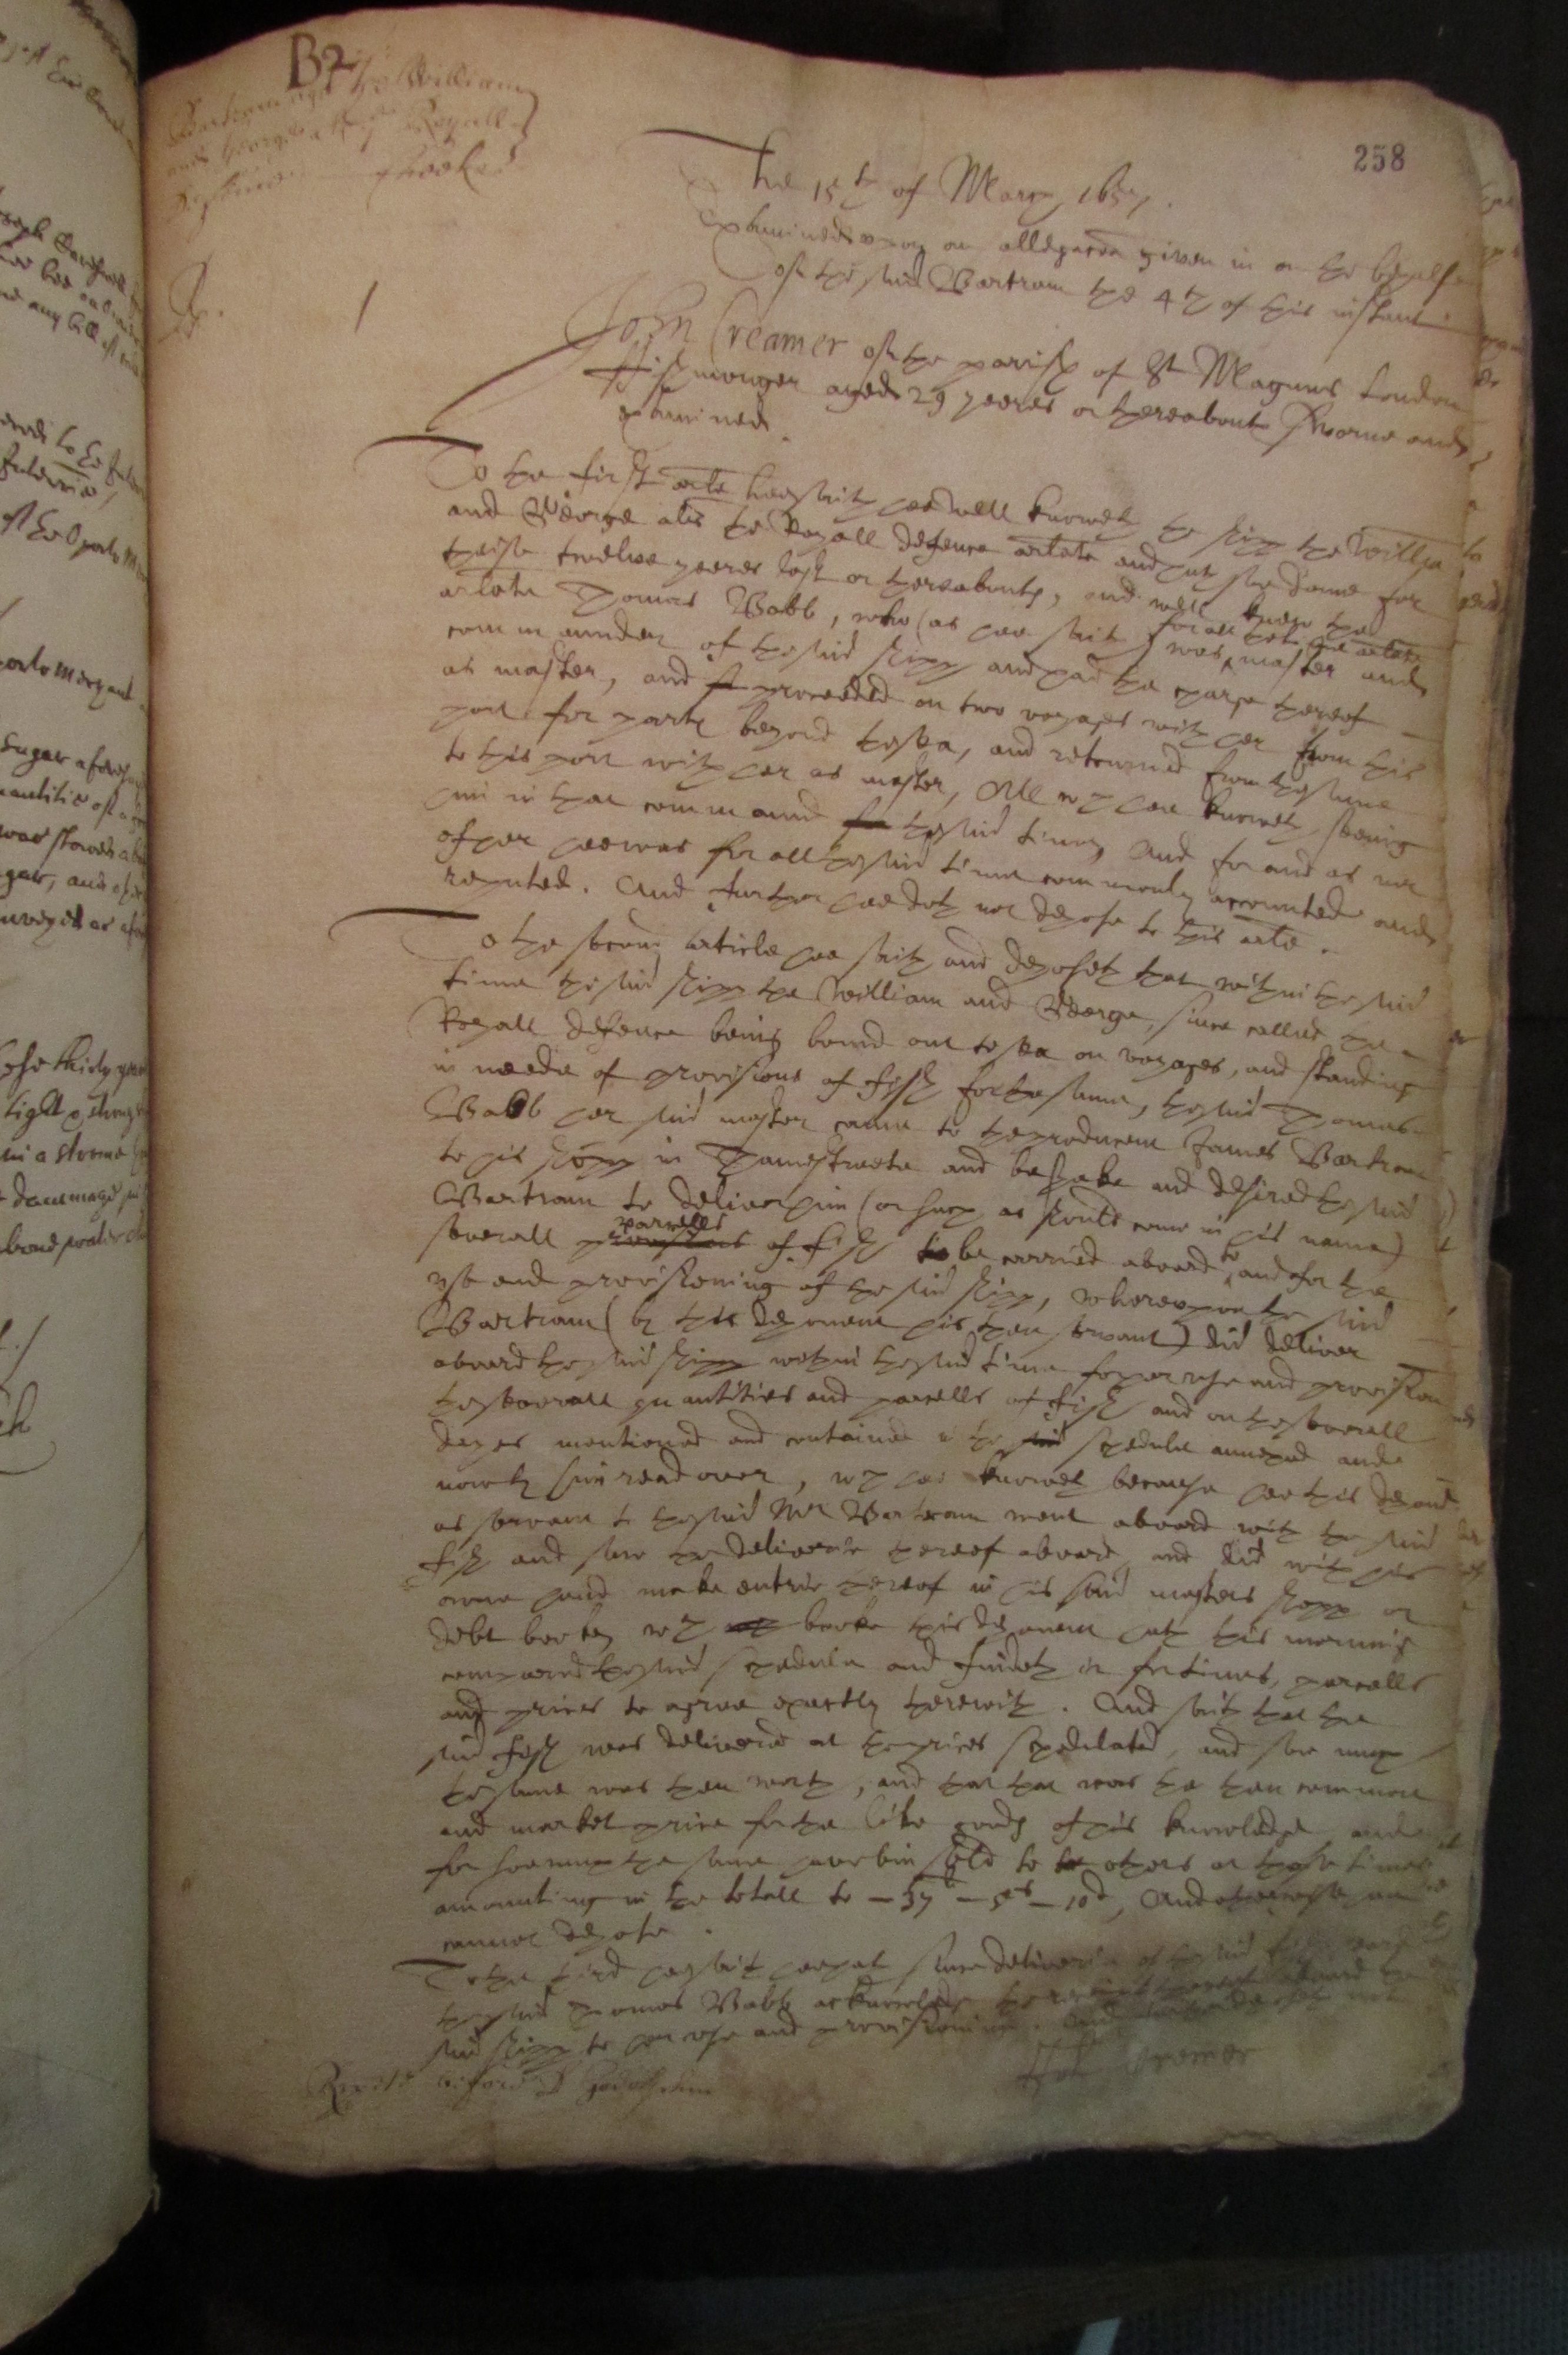 B2
Bartram agt the William
and George als the Royall
defence
258
The 15th of March 1657.
Examined upon an allegacon given in on the behalfe
of the said Bartram the 4th of this instant
Dt.
1
John Creamer of the parish of St Magnus London
ffishmonger aged 29 yeeres or thereabouts sworne and
examined.
To the first arle hee saith hee well knoweth the shipp the William
and George als the Royall defence arlate and hath soe donne for
theise twelve yeeres last or thereabouts, and well knew the
arlate Thomas Babb, who (as hee saith) was for all that time arlate master and
commaunder of the said shipp and had the charge thereof
as master, and proceeded on two voyages with her from this
port for parts beyond the sea, and returned from the same
to this port with her as master, All wch hee knoweth seeing
him in that command the said time, And for and as mr
of her hee was for all the said time commonly accounted and
reputed. And further hee doth not depose to this arle.
To the second article hee saith and deposeth that within the said
time the said shipp the William and George, since called the
Royall defence being bound out to sea on voyages, and standing
in neede of provisions of fish for the same, the said Thomas
Babb her said master came to the producent James Bartram
to his shopp in Thamestreete and bespake and desired the said
Bartram to deliver him (or such as should come in his name)
severall provisions parcells of fish to be carried aboard to and for the
use and provisioning of the said shipp, whereupon the said
Bartram (by this deponent his then servant) did deliver
aboard the said shipp within the said time for her use and provision
the severall quantities and parcells of fish and on the severall
dayes mentioned and contained in the said schedule annexed and
nowe by him read over, wch hee knoweth because hee this deponent
as servant to the said Mr Bartram went aboard with the said
fish and saw the deliverie thereof aboard and did with his
owne hand make entrie thereof in his said masters shopp or
debt booke, wch booke this deponent hath this morning
compared the said schedule and findeth it for times, parcells
and prices to agree exactly therewith. And saith that the
said fish was delivered at the prices schedulated, and soe much
the same was then worth, and that that was the then common
and market price for the like goods of his knowledge and
for soe much the same have bin sold to others at those times
amounting in the totall to - 37li - 5s - 10d, And otherwise hee
cannot depose.
To the third hee saith hee hath since deliverie of the said fish heard
the said Thomas Babb acknowledge the receipt thereof aboard the
said shipp to her use and provisioning. And further deposeth not
Repeated before D Godolphin
Joh Cremer